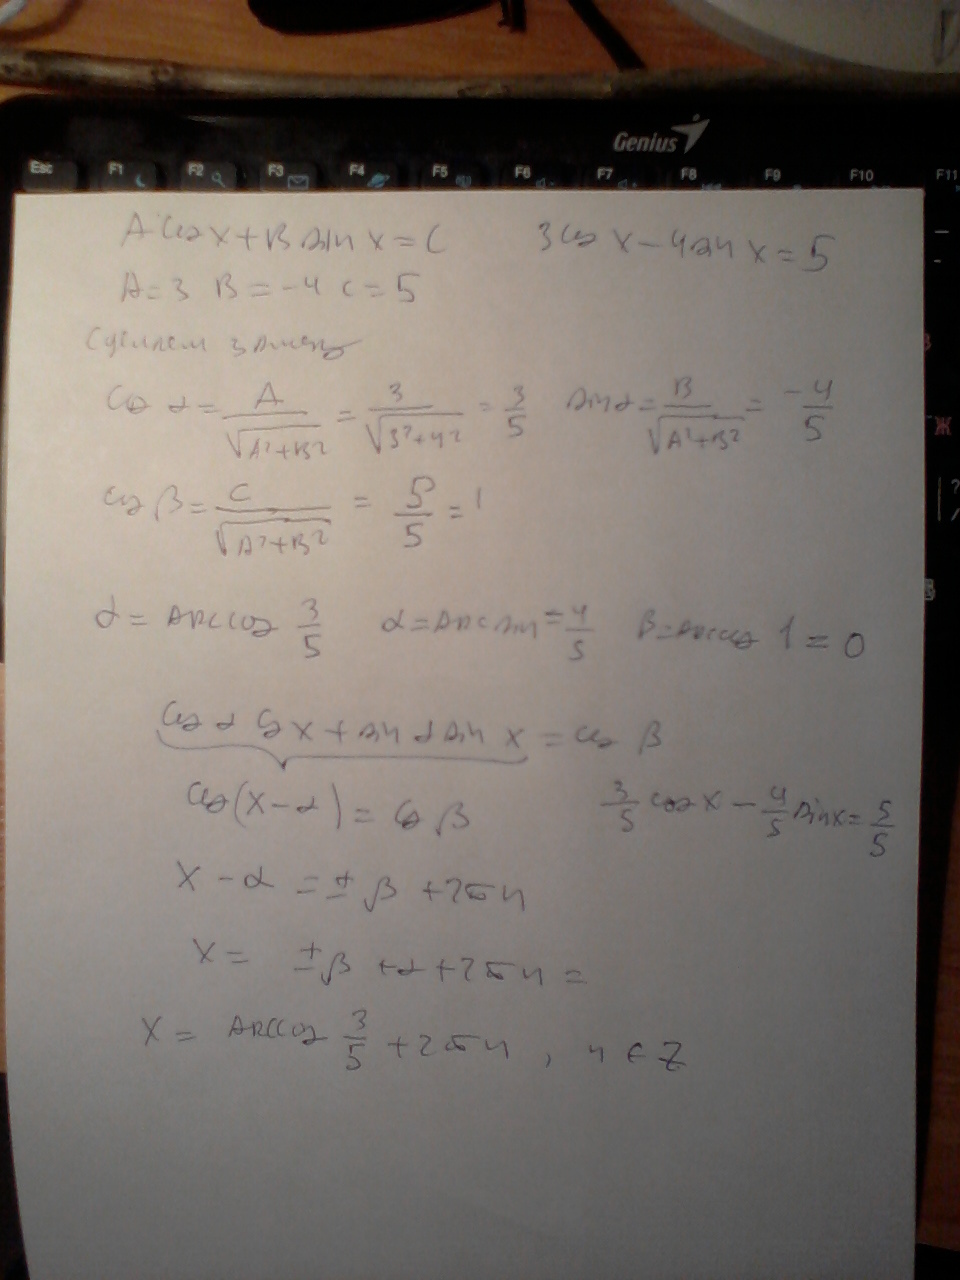 Genius
Esc F1 F2 F3 F4 F5 F6 F7 F8 F9 F10 F11
A cos x + B sin x = C 3 cos x - 4 sin x = 5
A = 3 B = -4 C = 5
Сделаем замену
cos α = A/√(A²+B²) = 3/√(3²+4²) = 3/5 sin α = B/√(A²+B²) = -4/5
Ж
cos β = C/√(A²+B²) = 5/5 = 1
α = arccos 3/5 α = arcsin -4/5 β = arccos 1 = 0
cos α cos x + sin α sin x = cos β
cos(x - α) = cos β 3/5 cos x - 4/5 sin x = 5/5
x - α = ± β + 2πn
x = ± β + α + 2πn =
x = arccos 3/5 + 2πn, n ∈ Z